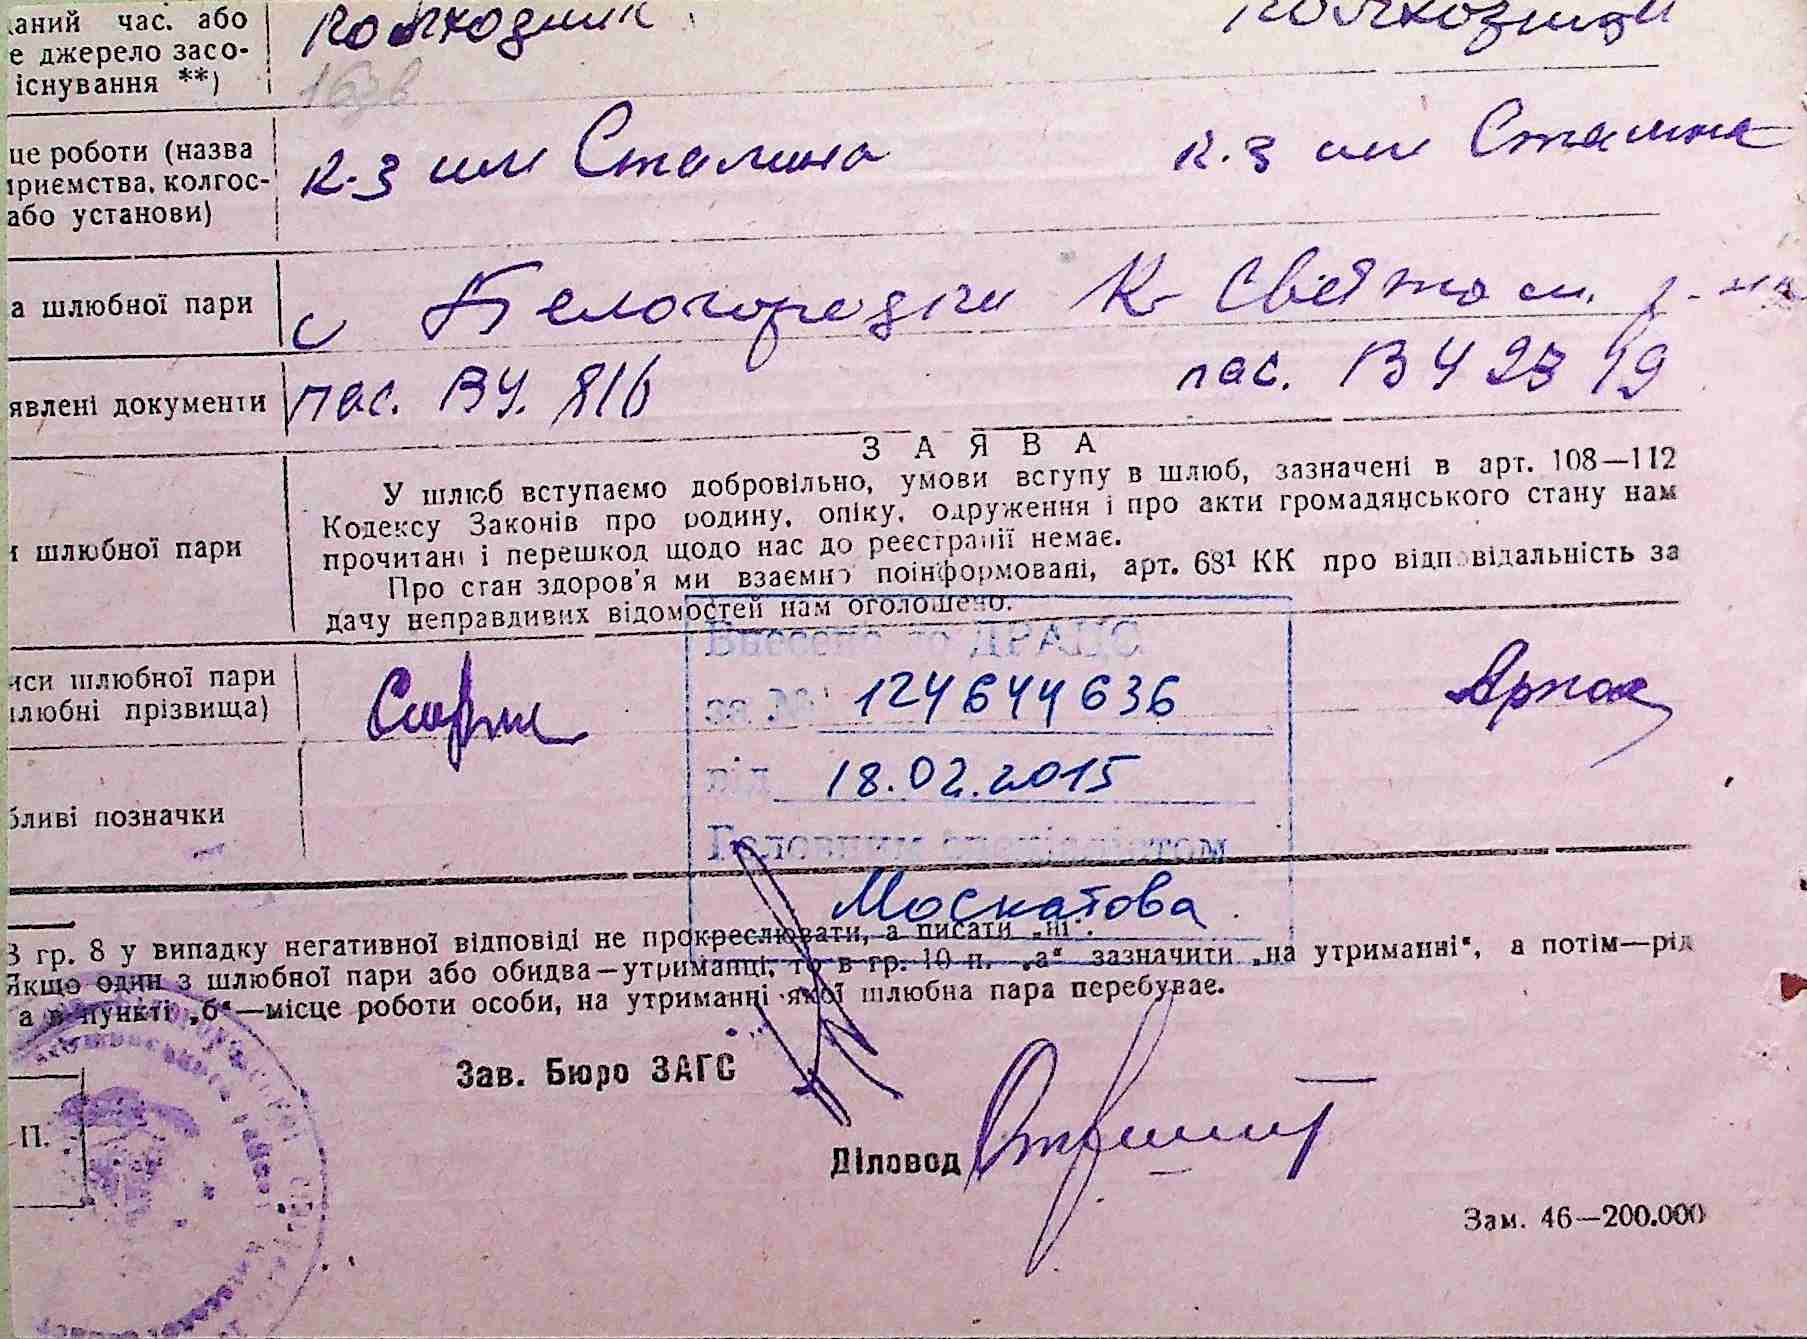 даний час. або колхозник колхозниця
е джерело засо-
існування **)
це роботи (назва к-з им Сталина к.з им Сталина
приємства, колгос-
або установи)
а шлюбної пари с Белогородки К-Святош. р-на
явлені документи пас. ВЧ. 816 пас. ВЧ 23 49
ЗАЯВА
У шлюб вступаємо добровільно, умови вступу в шлюб, зазначені в арт. 108—112
Кодексу Законів про родину, опіку, одруження і про акти громадянського стану нам
и шлюбної пари прочитані і перешкод щодо нас до реєстрації немає.
Про стан здоров'я ми взаємно поінформовані, арт. 68¹ КК про відповідальність за
дачу неправдивих відомостей нам оголошено.
Внесено до ДРАЦС
иси шлюбної пари
шлюбні прізвища)
за № 124644636
від 18.02.2015
бливі позначки
Головним спеціалістом
Москатова
В гр. 8 у випадку негативної відповіді не прокреслювати, а писати „ні".
Якщо один з шлюбної пари або обидва—утриманці, то в гр. 10 п. „а" зазначити „на утриманні", а потім—рід
а в пункті „б"—місце роботи особи, на утриманні якої шлюбна пара перебуває.
Зав. Бюро ЗАГС
П.
Діловод
Зам. 46—200.000